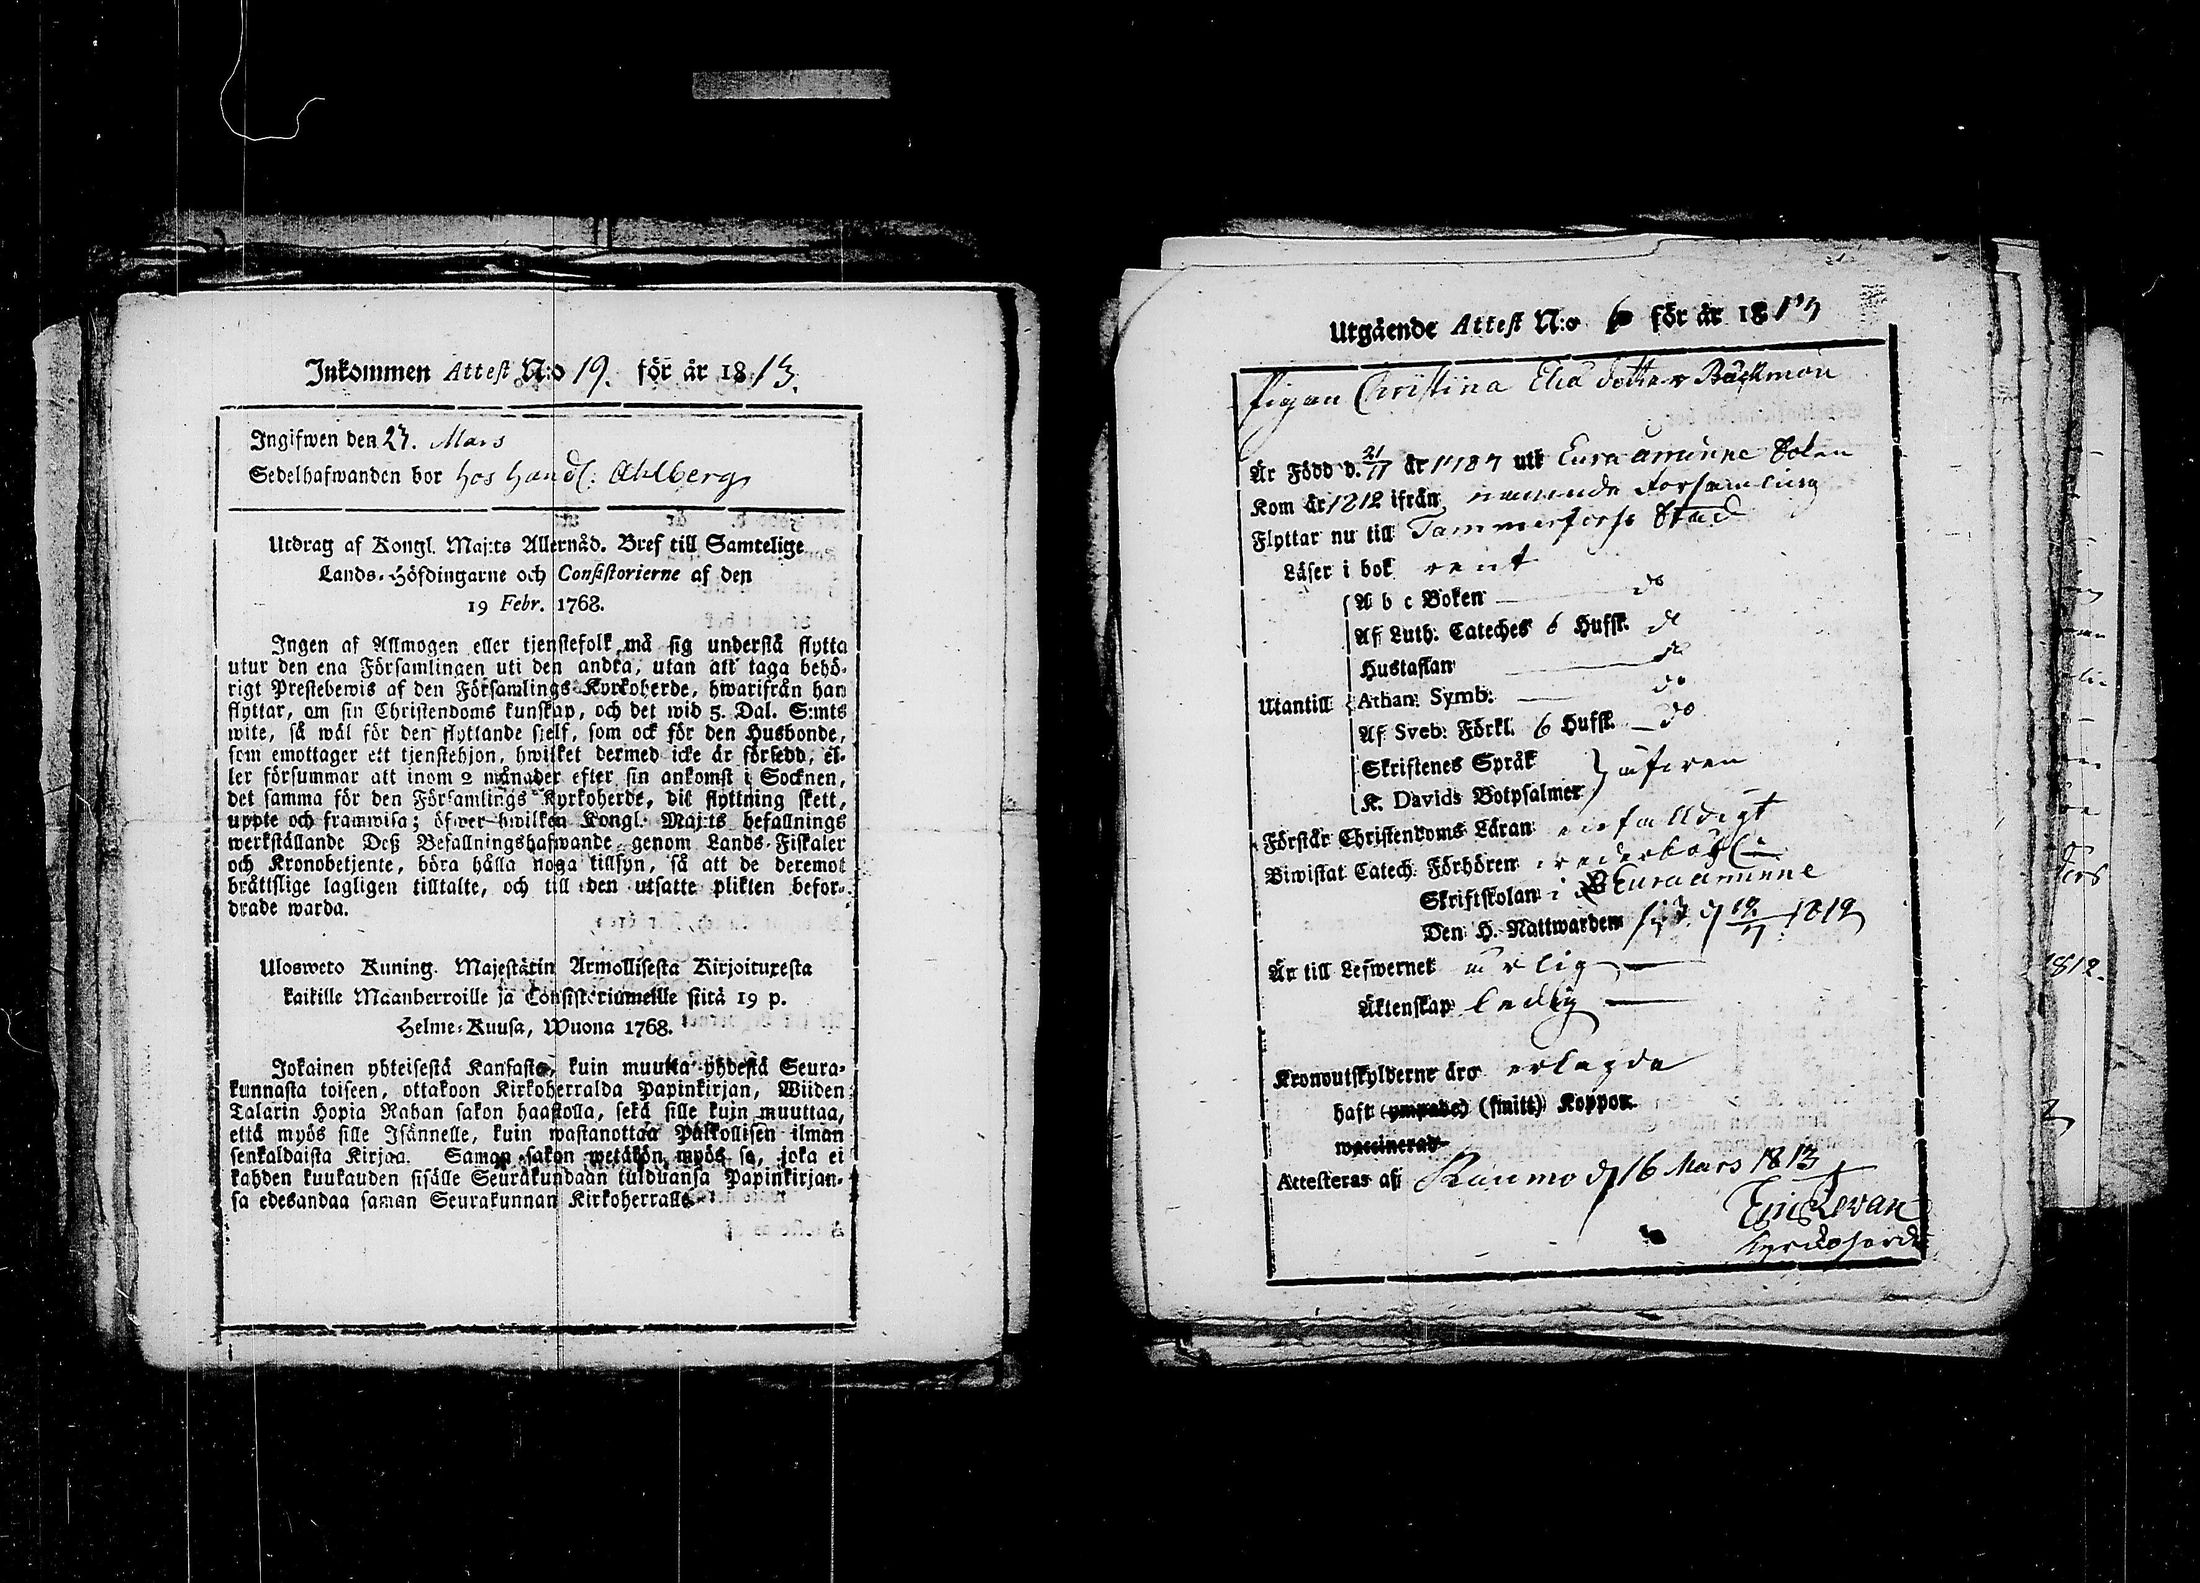 Inkommen Attest N:o 19. för år 1813.
Ingifwen den 23. Mars
Sedelhafwanden bor hos Handl: Ahlberg
Utdrag af Kongl. Maj:ts Allernåd. Bref till Samtelige
Lands-Höfdingarne och Consistorierne af den
19 Febr. 1768.
Ingen af Allmogen eller tjenstefolk må sig understå flytta
utur den ena Församlingen uti den andra, utan att taga behö-
rigt Prestebewis af den Församlings Kyrkoherde, hwarifrån han
flyttar, om sin Christendoms kunskap, och det wid 5. Dal. S:mts
wite, så wäl för den flyttande sjelf, som ock för den Husbonde,
som emottager ett tjenstehjon, hwilket dermed icke är försedd, el-
ler försummar att inom 2 månader efter sin ankomst i Socknen,
det samma för den Församlings Kyrkoherde, dit flyttning skett,
uppte och framwisa; öfwer hwilken Kongl. Maj:ts befallnings
werkställande Deß Befallningshafwande genom Lands-Fiskaler
och Kronobetjente, böra hålla noga tillsyn, så att de deremot
bråttslige lagligen tilltalte, och till den utsatte plikten befor-
drade warda.
Ulosweto Kuning. Majestätin Armollisesta Kirjoituxesta
kaikille Maanherroille ja Consistoriumeille siitä 19 p.
Helme-Kuusa, Wuona 1768.
Jokainen yhteisestä Kansasta, kuin muutta yhdestä Seura-
kunnasta toiseen, ottakoon Kirkoherralda Papinkirjan, Wiiden
Talarin Hopia Rahan sakon haastolla, sekä sille kuin muuttaa,
että myös sille Isännelle, kuin wastanottaa Palkollisen ilman
senkaldaista Kirjaa. Saman sakon wetäkön myös se, joka ei
kahden kuukauden sisälle Seurakundaan tulduansa Papinkirjan-
sa edesandaa saman Seurakunnan Kirkoherralle.
Utgående Attest N:o 6 för år 1813
Pigan Christina Elia dotter Backman
Är Född d. 21/11 år 1787 uti Eura åminne Sokn
Kom år 1812 ifrån nämnde Församling
Flyttar nu till Tammerfors Stad
Läser i bok rent
A b c Boken do
Af Luth: Cateches 6 Hufst. do
Hustaflan do
Utantill Athan: Symb: do
Af Sveb: Förkl. 6 Hufst. do
Skriftenes Språk
K. Davids Botpsalmer äfwen
Förstår Christendoms Läran enfalldigt
Biwistat Catech. Förhören wederbörl:
Skriftskolan i Euraåminne
Den H. Nattwarden sist d 19/7 1812
Är till Lefwernet ärlig
Äktenskap ledig
Kronoutskylderne äro erlagde
haft (ympade) (smitt) Koppor.
waccinerad
Attesteras af Raumo d 16 Mars 1813
Eric Levan
Kyrckoherde